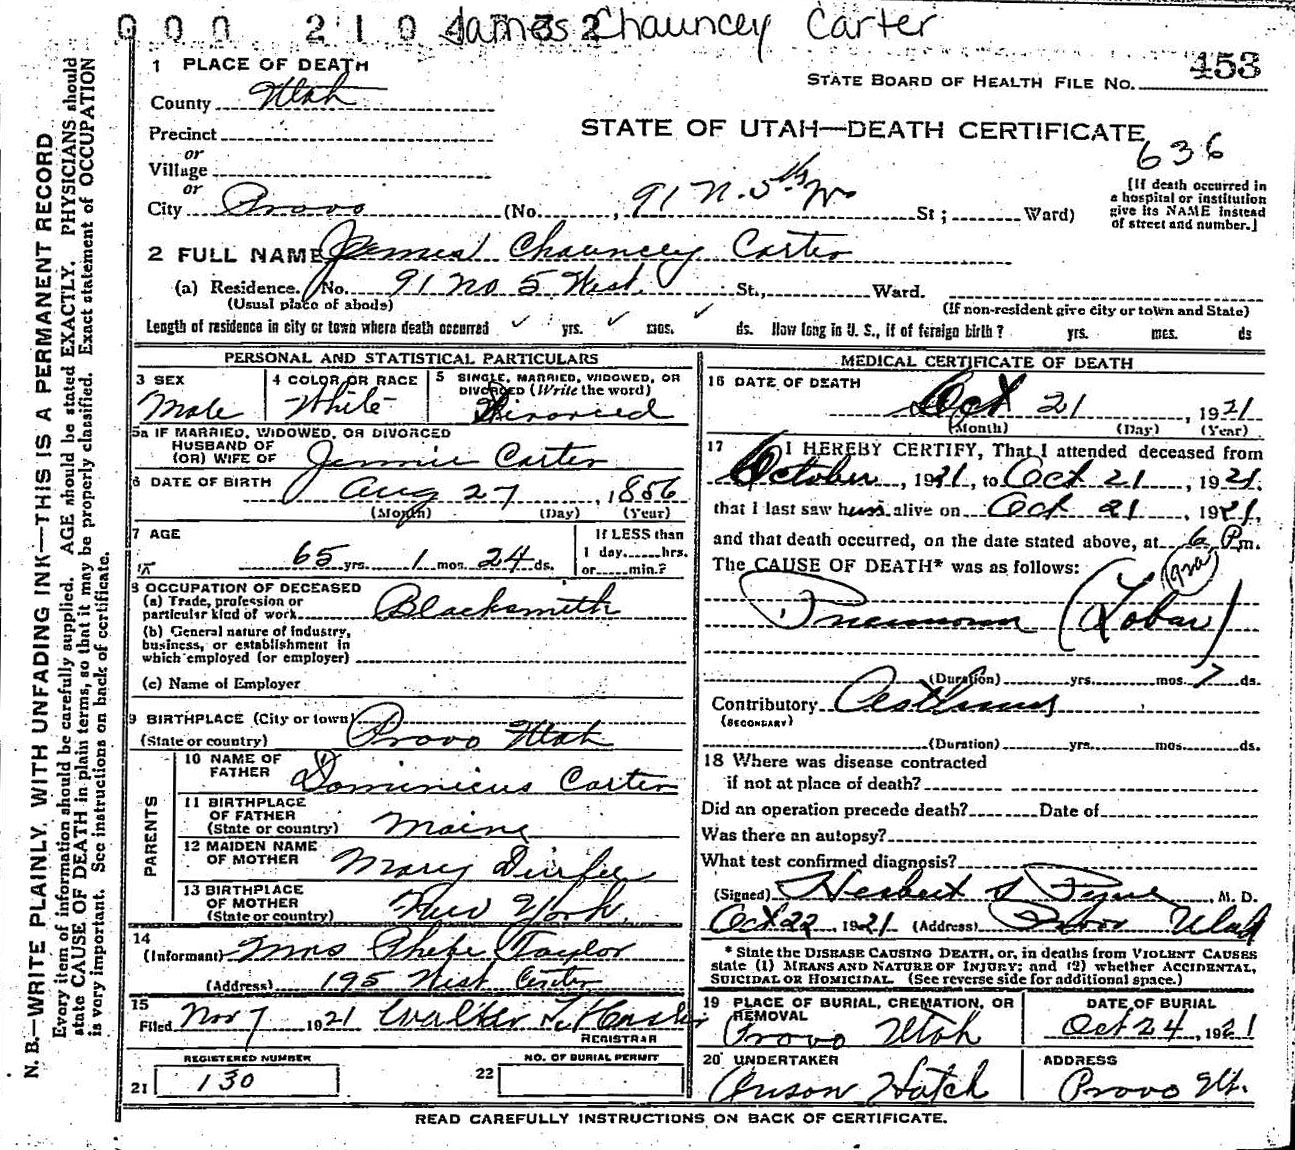 000 210 32 James Chauncey Carter
453
STATE BOARD OF HEALTH FILE No.
1 PLACE OF DEATH
County Utah
STATE OF UTAH—DEATH CERTIFICATE
636
Precinct
or
Village
or
City Provo (No. 91 N. 5th W St; Ward)
[If death occurred in
a hospital or institution
give its NAME instead
of street and number.]
2 FULL NAME James Chauncey Carter
(a) Residence. No. 91 No 5 West. St., Ward.
(Usual place of abode) (If non-resident give city or town and State)
Length of residence in city or town where death occurred ✓ yrs. ✓ mos. ✓ ds. How long in U. S., if of foreign birth? yrs. mes. ds
PERSONAL AND STATISTICAL PARTICULARS
3 SEX
Male
4 COLOR OR RACE
White
5 SINGLE, MARRIED, WIDOWED, OR
DIVORCED (Write the word)
Divorced
5a IF MARRIED, WIDOWED, OR DIVORCED
HUSBAND OF
(OR) WIFE OF Jennie Carter
6 DATE OF BIRTH
Aug 27, 1856
(Month) (Day) (Year)
7 AGE
65 yrs. 1 mos. 24 ds.
If LESS than
1 day......hrs.
or......min.?
8 OCCUPATION OF DECEASED
(a) Trade, profession or
particular kind of work Blacksmith
(b) General nature of industry,
business, or establishment in
which employed (or employer)
(c) Name of Employer
9 BIRTHPLACE (City or town)
(State or country) Provo Utah
PARENTS
10 NAME OF
FATHER Dominicus Carter
11 BIRTHPLACE
OF FATHER
(State or country) Maine
12 MAIDEN NAME
OF MOTHER Mary Durfee
13 BIRTHPLACE
OF MOTHER
(State or country) New York.
14
(Informant) Mrs Phebe Taylor
(Address) 195 West Center
15
Filed Nov 7 1921 Walter T. Hasler
REGISTRAR
REGISTERED NUMBER
21 130
NO. OF BURIAL PERMIT
22
MEDICAL CERTIFICATE OF DEATH
16 DATE OF DEATH
Oct 21, 1921
(Month) (Day) (Year)
17 I HEREBY CERTIFY, That I attended deceased from
October, 1921, to Oct 21, 1921.
that I last saw him alive on Oct 21, 1921,
and that death occurred, on the date stated above, at 6 Pm.
The CAUSE OF DEATH* was as follows:
Pneumonia (Lobar)
(Duration) yrs. mos. 7 ds.
Contributory Asthma
(SECONDARY)
(Duration) yrs. mos. ds.
18 Where was disease contracted
if not at place of death?
Did an operation precede death? Date of
Was there an autopsy?
What test confirmed diagnosis?
(Signed) Herbert S Pyne, M. D.
Oct 22, 1921 (Address) Provo Utah
* State the DISEASE CAUSING DEATH, or, in deaths from VIOLENT CAUSES
state (1) MEANS AND NATURE OF INJURY; and (2) whether ACCIDENTAL,
SUICIDAL OR HOMICIDAL. (See reverse side for additional space.)
19 PLACE OF BURIAL, CREMATION, OR
REMOVAL
Provo Utah
DATE OF BURIAL
Oct 24, 1921
20 UNDERTAKER
Anson Hatch
ADDRESS
Provo Ut.
READ CAREFULLY INSTRUCTIONS ON BACK OF CERTIFICATE.
N. B.—WRITE PLAINLY, WITH UNFADING INK—THIS IS A PERMANENT RECORD
Every item of information should be carefully supplied. AGE should be stated EXACTLY. PHYSICIANS should
state CAUSE OF DEATH in plain terms, so that it may be properly classified. Exact statement of OCCUPATION
is very important. See instructions on back of certificate.